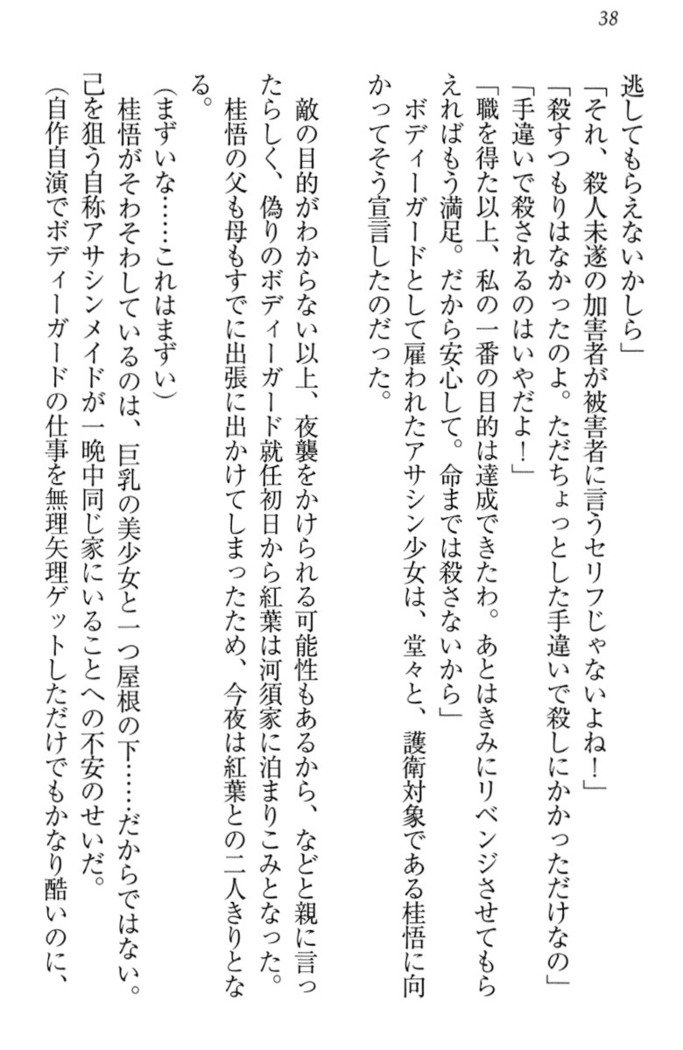 38
逃してもらえないかしら」
「それ、殺人未遂の加害者が被害者に言うセリフじゃないよね！」
「殺すつもりはなかったのよ。ただちょっとした手違いで殺しにかかっただけなの」
「手違いで殺されるのはいやだよ！」
「職を得た以上、私の一番の目的は達成できたわ。あとはきみにリベンジさせてもら
えればもう満足。だから安心して。命までは殺さないから」
ボディーガードとして雇われたアサシン少女は、堂々と、護衛対象である桂悟に向
かってそう宣言したのだった。
敵の目的がわからない以上、夜襲をかけられる可能性もあるから、などと親に言っ
たらしく、偽りのボディーガード就任初日から紅葉は河須家に泊まりこみとなった。
桂悟の父も母もすでに出張に出かけてしまったため、今夜は紅葉との二人きりとな
る。
（まずいな……これはまずい）
桂悟がそわそわしているのは、巨乳の美少女と一つ屋根の下……だからではない。
己を狙う自称アサシンメイドが一晩中同じ家にいることへの不安のせいだ。
（自作自演でボディーガードの仕事を無理矢理ゲットしただけでもかなり酷いのに、